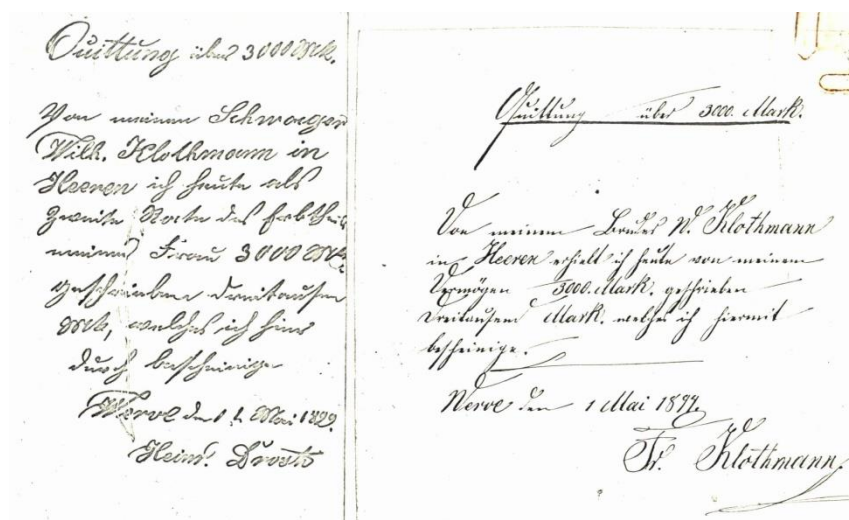 Quittung über 3000 Mk.
Von meinem Schwager
Wilh. Klothmann in
Heeren ich heute als
zweite Rate des Erbtheils
meiner Frau 3000 Mk,
geschrieben dreitausen
Mk, welches ich hier
durch bescheinige
Werve den 1. Mai 1899.
Heinr.
Quittung über 3000. Mark.
Von meinem Bruder W. Klothmann
in Heeren erhielt ich heute von meinem
Vermögen 3000. Mark. geschrieben
Dreitausend Mark. welches ich hiermit
bescheinige.
Werve den 1 Mai 1899.
Fr. Klothmann,